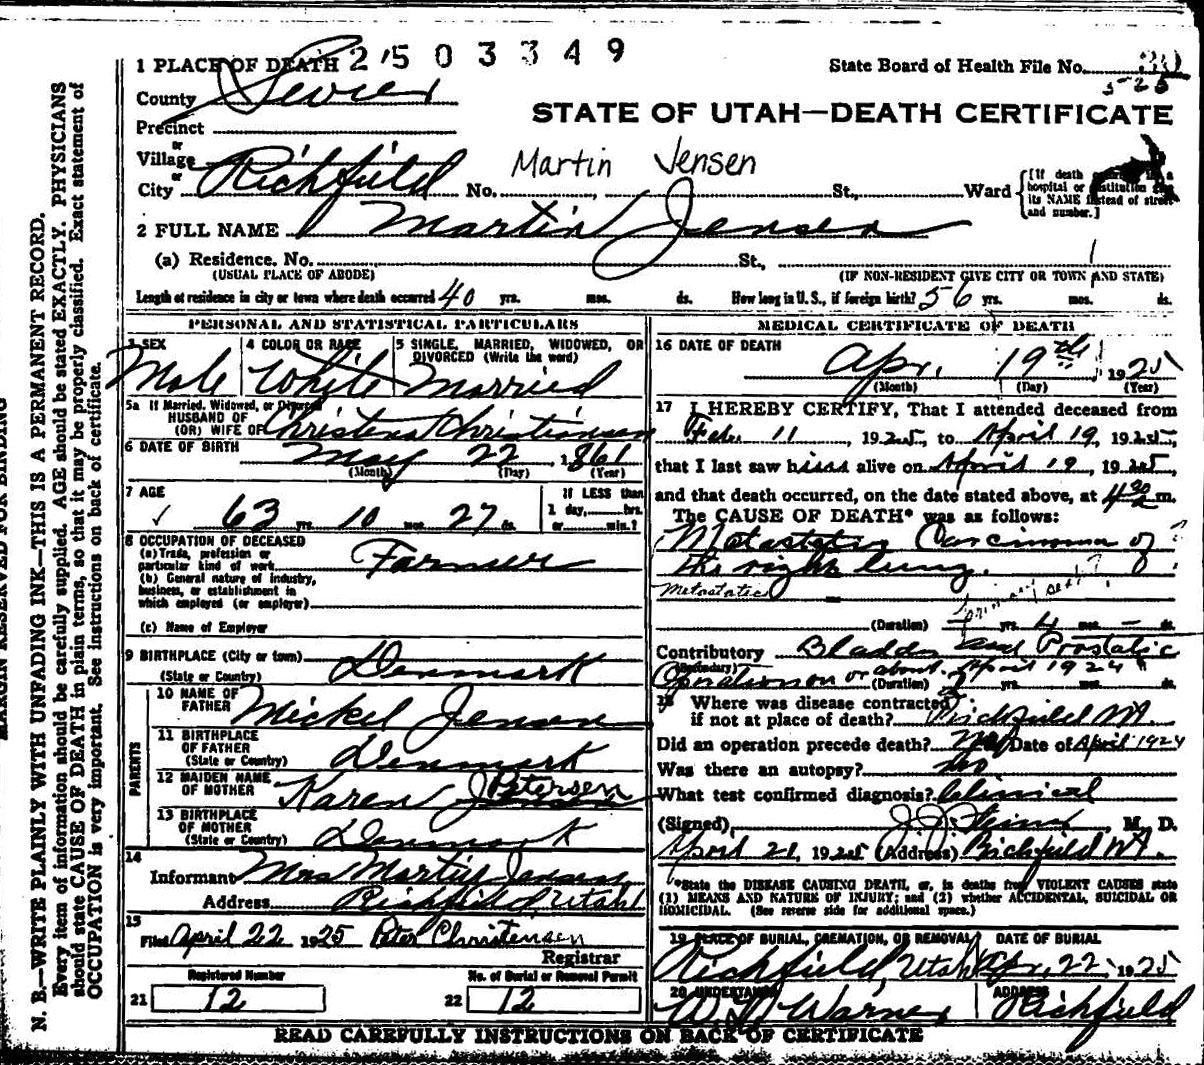 1 PLACE OF DEATH 2503349
State Board of Health File No. 30
525
County Sevier
STATE OF UTAH—DEATH CERTIFICATE
Precinct
or
Village
Martin Jensen
or
City Richfield No. St., Ward
[If death occurred in a hospital or institution give its NAME instead of street and number.]
2 FULL NAME Martin Jensen
(a) Residence. No. St.,
(USUAL PLACE OF ABODE) (IF NON-RESIDENT GIVE CITY OR TOWN AND STATE)
Length of residence in city or town where death occurred 40 yrs. mos. ds. How long in U. S., if foreign birth? 56 yrs. mos. ds.
PERSONAL AND STATISTICAL PARTICULARS
3 SEX Male
4 COLOR OR RACE White
5 SINGLE, MARRIED, WIDOWED, OR DIVORCED (Write the word) Married
5a If Married, Widowed, or Divorced
HUSBAND OF
(OR) WIFE OF Christena Christiansen
6 DATE OF BIRTH May 22 1861
(Month) (Day) (Year)
7 AGE 63 yrs. 10 mos. 27 ds.
If LESS than
1 day, hrs.
or min.?
8 OCCUPATION OF DECEASED
(a) Trade, profession or
particular kind of work Farmer
(b) General nature of industry,
business, or establishment in
which employed (or employer)
(c) Name of Employer
9 BIRTHPLACE (City or town)
(State or Country) Denmark
PARENTS
10 NAME OF FATHER Mickel Jensen
11 BIRTHPLACE OF FATHER
(State or Country) Denmark
12 MAIDEN NAME OF MOTHER Karen Petersen
13 BIRTHPLACE OF MOTHER
(State or Country) Denmark
14
Informant Mrs Martin Jensen
Address Richfield, Utah
15
Filed April 22 1925 Peter Christensen
Registrar
Registered Number No. of Burial or Removal Permit
21 12 22 12
MEDICAL CERTIFICATE OF DEATH
16 DATE OF DEATH
Apr. 19th 1925
(Month) (Day) (Year)
17 I HEREBY CERTIFY, That I attended deceased from
Feb. 11, 1925, to April 19, 1925,
that I last saw him alive on April 19, 1925,
and that death occurred, on the date stated above, at 4 30 m.
The CAUSE OF DEATH* was as follows:
Metastatic Carcinoma of ?
the right lung. ?
Metastatic
Primary seat?
(Duration) yrs. 4 mos. – ds.
Contributory Bladder and Prostatic
(Secondary)
Operation on or about April 1924
(Duration) yrs. mos. ds.
18 Where was disease contracted
if not at place of death? Richfield Ut.
Did an operation precede death? Yes Date of April 1924
Was there an autopsy? no
What test confirmed diagnosis? Clinical
(Signed) J. J. M. D.
April 21, 1925 (Address) Richfield Ut.
*State the DISEASE CAUSING DEATH, or, in deaths from VIOLENT CAUSES state
(1) MEANS AND NATURE OF INJURY; and (2) whether ACCIDENTAL, SUICIDAL OR
HOMICIDAL. (See reverse side for additional space.)
19 PLACE OF BURIAL, CREMATION, OR REMOVAL DATE OF BURIAL
Richfield, Utah Apr. 22, 1925
20 UNDERTAKER ADDRESS
Warner Richfield
READ CAREFULLY INSTRUCTIONS ON BACK OF CERTIFICATE
MARGIN RESERVED FOR BINDING
N. B.—WRITE PLAINLY WITH UNFADING INK—THIS IS A PERMANENT RECORD.
Every item of information should be carefully supplied. AGE should be stated EXACTLY. PHYSICIANS
should state CAUSE OF DEATH in plain terms, so that it may be properly classified. Exact statement of
OCCUPATION is very important. See instructions on back of certificate.